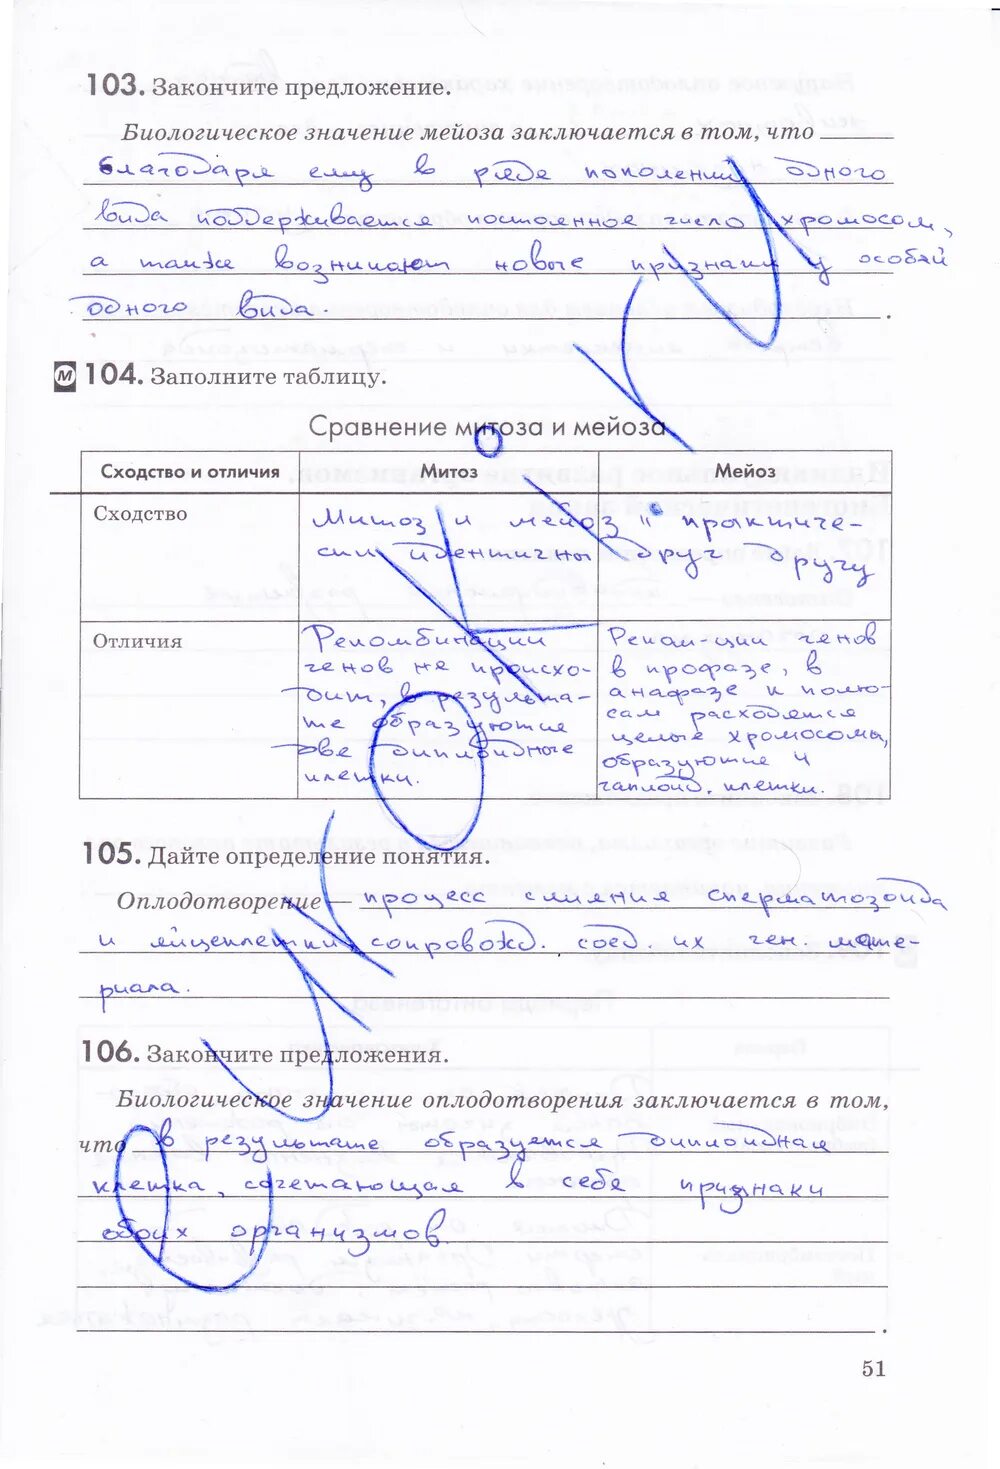 103. Закончите предложение.
Биологическое значение мейоза заключается в том, что
благодаря ему в ряде поколений одного
вида поддерживается постоянное число хромосом,
а также возникают новые признаки у особей
одного вида.
М 104. Заполните таблицу.
Сравнение митоза и мейоза
Сходство и отличия Митоз Мейоз
Сходство
Митоз и мейоз практиче-
ски идентичны друг другу
Отличия
Рекомбинации
генов не происхо-
дит, в результа-
те образуются
две диплоидные
клетки.
Реком-ции генов
в профазе, в
анафазе к полю-
сам расходятся
целые хромосомы,
образующие 4
гаплоид. клетки.
105. Дайте определение понятия.
Оплодотворение — процесс слияния сперматозоида
и яйцеклетки, сопровожд. соед. их ген. мате-
риала.
106. Закончите предложения.
Биологическое значение оплодотворения заключается в том,
что в результате образуется диплоидная
клетка, сочетающая в себе признаки
обоих организмов.
51